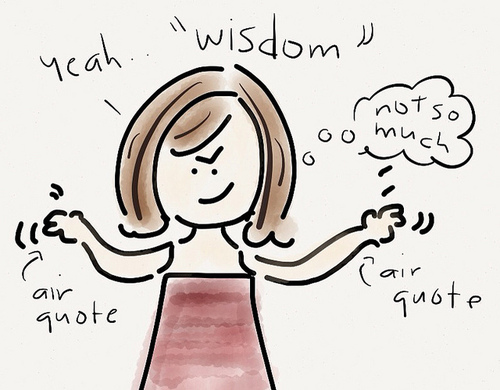 yeah.. "wisdom"
not so
much
air
quote
air
quote